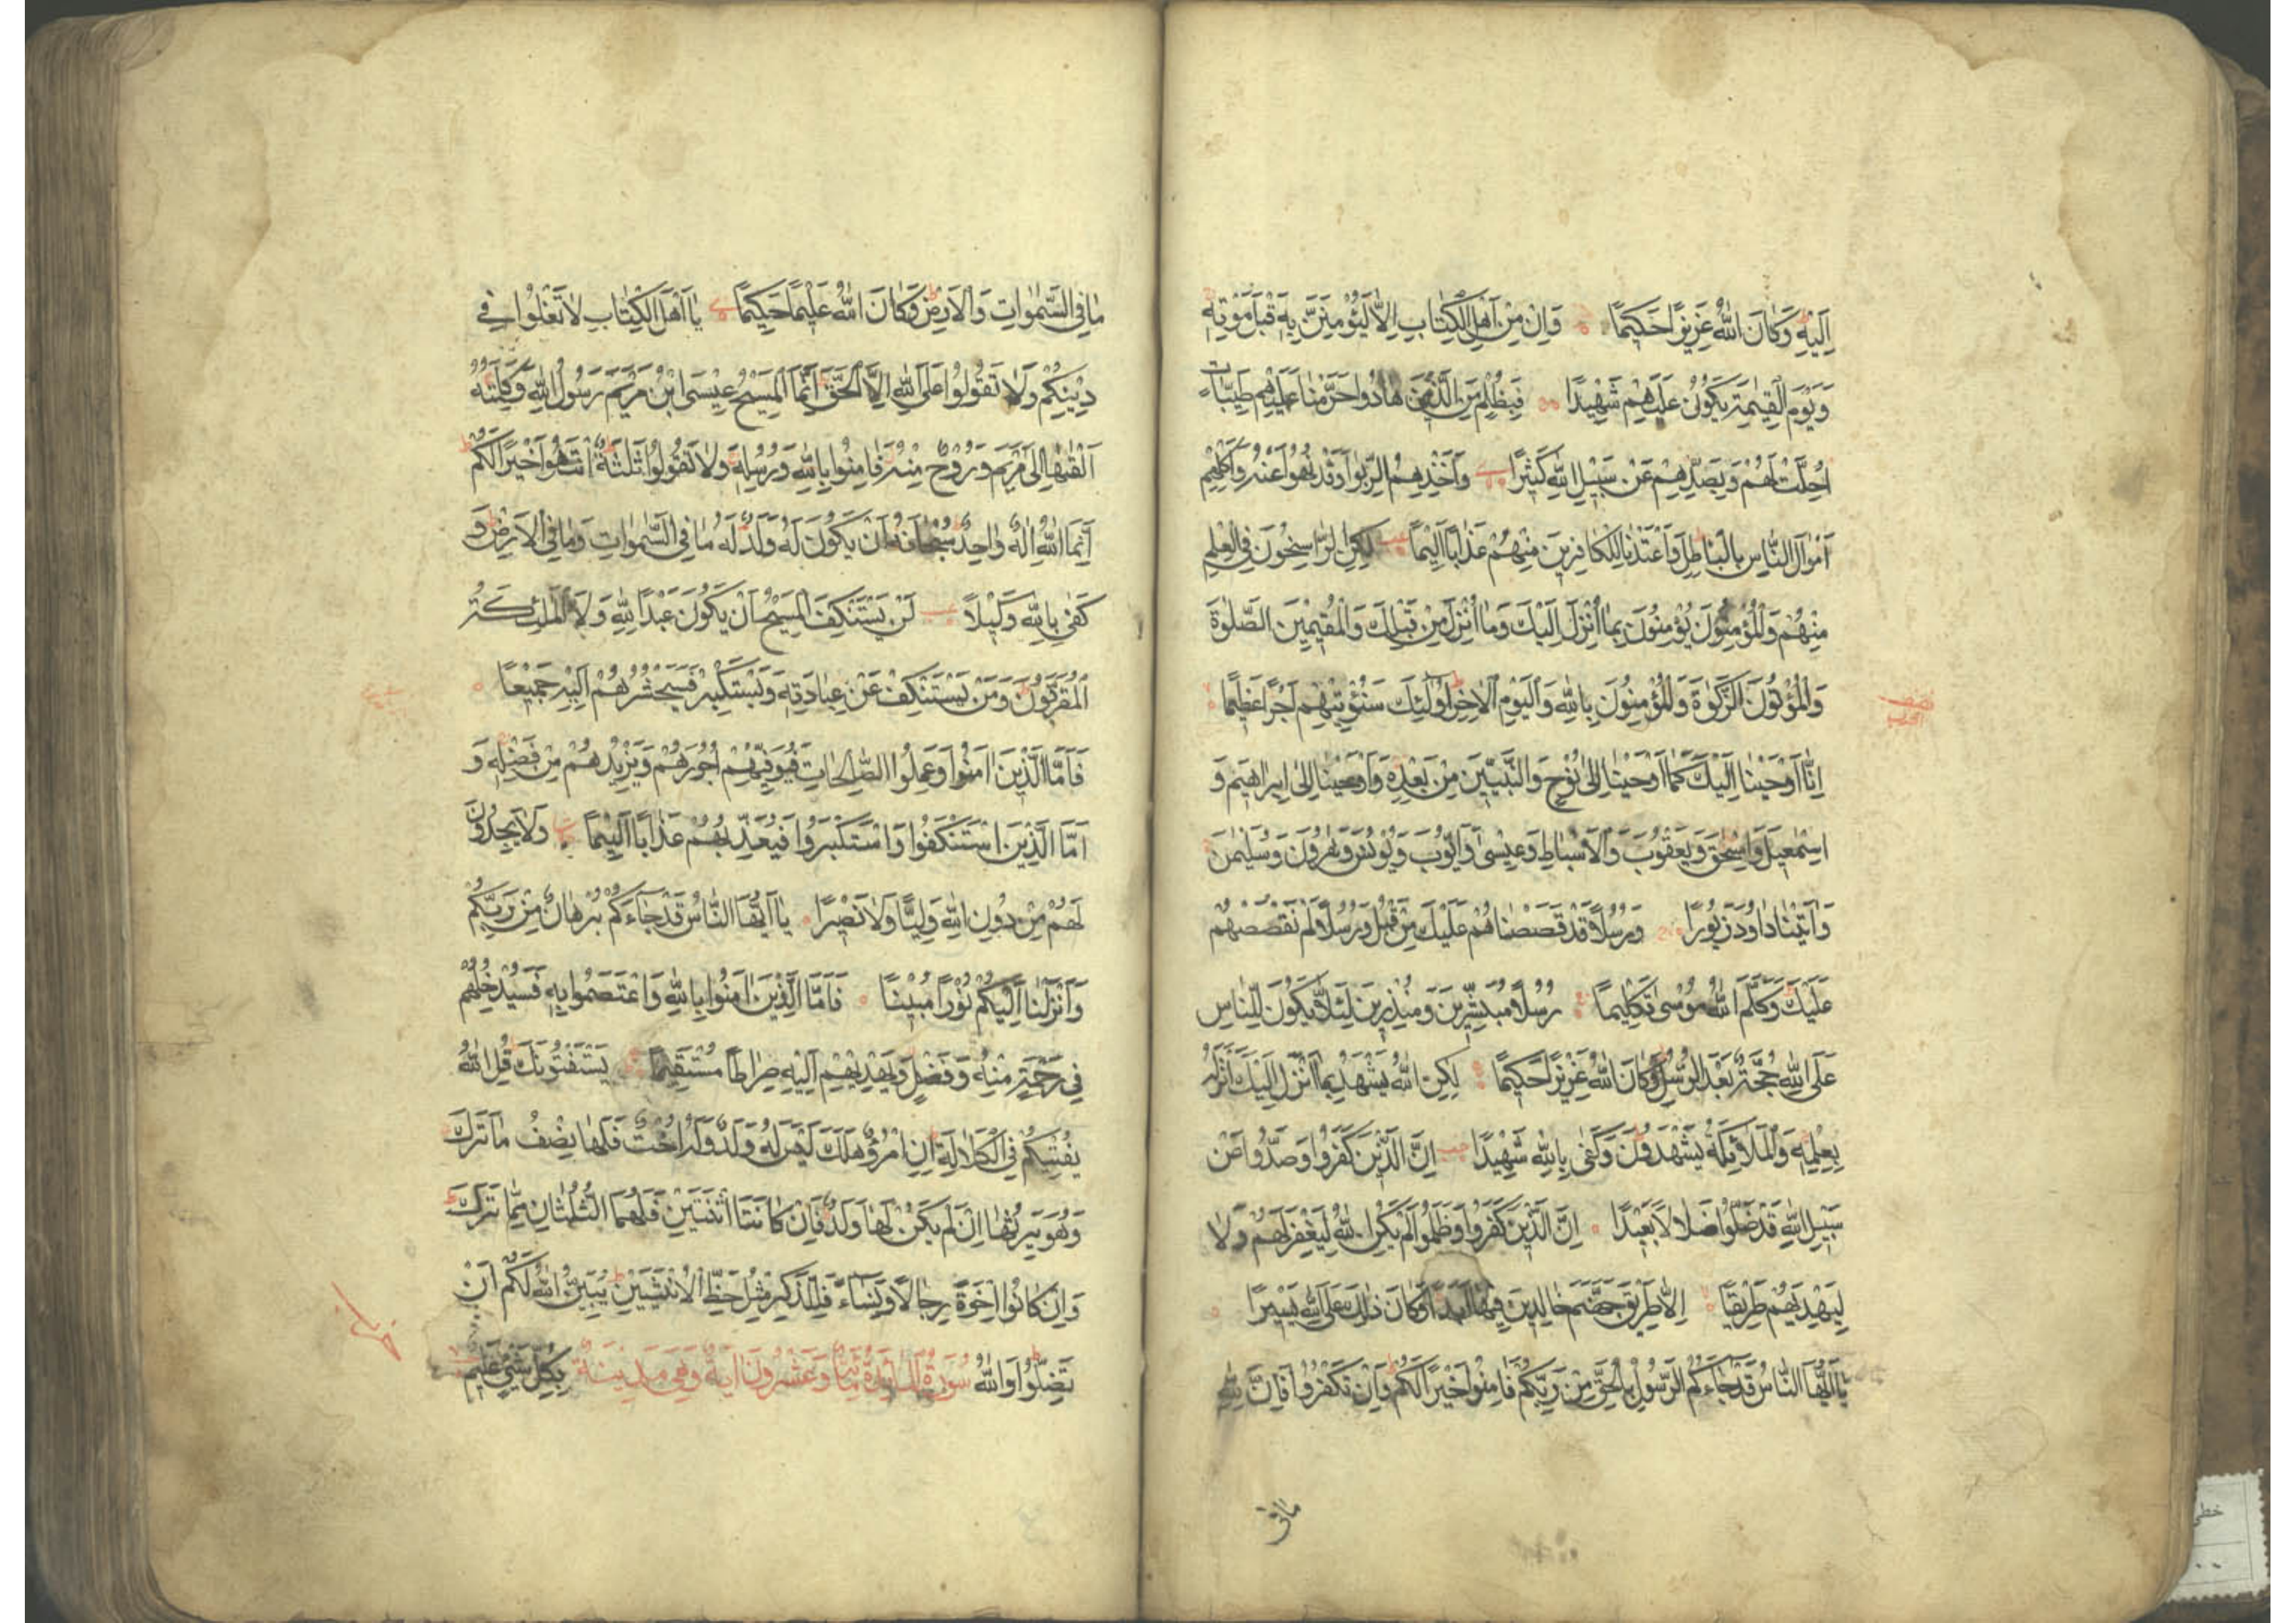 اِلَيْهِ وَكَانَ اللّٰهُ عَزِيْزًا حَكِيْمًا وَاِنْ مِنْ اَهْلِ الْكِتَابِ اِلَّا لَيُؤْمِنَنَّ بِهٖ قَبْلَ مَوْتِهٖ
وَيَوْمَ الْقِيٰمَةِ يَكُوْنُ عَلَيْهِمْ شَهِيْدًا فَبِظُلْمٍ مِنَ الَّذِيْنَ هَادُوا حَرَّمْنَا عَلَيْهِمْ طَيِّبَاتٍ
اُحِلَّتْ لَهُمْ وَبِصَدِّهِمْ عَنْ سَبِيْلِ اللّٰهِ كَثِيْرًا وَاَخْذِهِمُ الرِّبٰوا وَقَدْ نُهُوْا عَنْهُ وَاَكْلِهِمْ
اَمْوَالَ النَّاسِ بِالْبَاطِلِ وَاَعْتَدْنَا لِلْكَافِرِيْنَ مِنْهُمْ عَذَابًا اَلِيْمًا لٰكِنِ الرَّاسِخُوْنَ فِي الْعِلْمِ
مِنْهُمْ وَالْمُؤْمِنُوْنَ يُؤْمِنُوْنَ بِمَا اُنْزِلَ اِلَيْكَ وَمَا اُنْزِلَ مِنْ قَبْلِكَ وَالْمُقِيْمِيْنَ الصَّلٰوةَ
وَالْمُؤْتُوْنَ الزَّكٰوةَ وَالْمُؤْمِنُوْنَ بِاللّٰهِ وَالْيَوْمِ الْاٰخِرِ اُولٰئِكَ سَنُؤْتِيْهِمْ اَجْرًا عَظِيْمًا
اِنَّا اَوْحَيْنَا اِلَيْكَ كَمَا اَوْحَيْنَا اِلٰى نُوْحٍ وَالنَّبِيِّيْنَ مِنْ بَعْدِهٖ وَاَوْحَيْنَا اِلٰى اِبْرَاهِيْمَ وَ
اِسْمٰعِيْلَ وَاِسْحٰقَ وَيَعْقُوْبَ وَالْاَسْبَاطِ وَعِيْسٰى وَاَيُّوْبَ وَيُوْنُسَ وَهٰرُوْنَ وَسُلَيْمٰنَ
وَاٰتَيْنَا دَاوُدَ زَبُوْرًا وَرُسُلًا قَدْ قَصَصْنَاهُمْ عَلَيْكَ مِنْ قَبْلُ وَرُسُلًا لَمْ نَقْصُصْهُمْ
عَلَيْكَ وَكَلَّمَ اللّٰهُ مُوْسٰى تَكْلِيْمًا رُسُلًا مُبَشِّرِيْنَ وَمُنْذِرِيْنَ لِئَلَّا يَكُوْنَ لِلنَّاسِ
عَلَى اللّٰهِ حُجَّةٌ بَعْدَ الرُّسُلِ وَكَانَ اللّٰهُ عَزِيْزًا حَكِيْمًا لٰكِنِ اللّٰهُ يَشْهَدُ بِمَا اَنْزَلَ اِلَيْكَ اَنْزَلَهُ
بِعِلْمِهٖ وَالْمَلَائِكَةُ يَشْهَدُوْنَ وَكَفٰى بِاللّٰهِ شَهِيْدًا اِنَّ الَّذِيْنَ كَفَرُوْا وَصَدُّوْا عَنْ
سَبِيْلِ اللّٰهِ قَدْ ضَلُّوْا ضَلَالًا بَعِيْدًا اِنَّ الَّذِيْنَ كَفَرُوْا وَظَلَمُوْا لَمْ يَكُنِ اللّٰهُ لِيَغْفِرَ لَهُمْ وَلَا
لِيَهْدِيَهُمْ طَرِيْقًا اِلَّا طَرِيْقَ جَهَنَّمَ خَالِدِيْنَ فِيْهَا اَبَدًا وَكَانَ ذٰلِكَ عَلَى اللّٰهِ يَسِيْرًا
يَا اَيُّهَا النَّاسُ قَدْ جَاءَكُمُ الرَّسُوْلُ بِالْحَقِّ مِنْ رَبِّكُمْ فَاٰمِنُوْا خَيْرًا لَكُمْ وَاِنْ تَكْفُرُوْا فَاِنَّ لِلّٰهِ
مَا فِى
مَا فِى السَّمٰوَاتِ وَالْاَرْضِ وَكَانَ اللّٰهُ عَلِيْمًا حَكِيْمًا يَا اَهْلَ الْكِتَابِ لَا تَغْلُوْا فِيْ
دِيْنِكُمْ وَلَا تَقُوْلُوْا عَلَى اللّٰهِ اِلَّا الْحَقَّ اِنَّمَا الْمَسِيْحُ عِيْسَى ابْنُ مَرْيَمَ رَسُوْلُ اللّٰهِ وَكَلِمَتُهُ
اَلْقٰىهَا اِلٰى مَرْيَمَ وَرُوْحٌ مِنْهُ فَاٰمِنُوْا بِاللّٰهِ وَرُسُلِهٖ وَلَا تَقُوْلُوْا ثَلٰثَةٌ اِنْتَهُوْا خَيْرًا لَكُمْ
اِنَّمَا اللّٰهُ اِلٰهٌ وَاحِدٌ سُبْحَانَهُ اَنْ يَكُوْنَ لَهُ وَلَدٌ لَهُ مَا فِى السَّمٰوَاتِ وَمَا فِى الْاَرْضِ وَ
كَفٰى بِاللّٰهِ وَكِيْلًا لَنْ يَسْتَنْكِفَ الْمَسِيْحُ اَنْ يَكُوْنَ عَبْدًا لِلّٰهِ وَلَا الْمَلٰئِكَةُ
الْمُقَرَّبُوْنَ وَمَنْ يَسْتَنْكِفْ عَنْ عِبَادَتِهٖ وَيَسْتَكْبِرْ فَسَيَحْشُرُهُمْ اِلَيْهِ جَمِيْعًا
فَاَمَّا الَّذِيْنَ اٰمَنُوْا وَعَمِلُوا الصَّالِحَاتِ فَيُوَفِّيْهِمْ اُجُوْرَهُمْ وَيَزِيْدُهُمْ مِنْ فَضْلِهٖ وَ
اَمَّا الَّذِيْنَ اسْتَنْكَفُوْا وَاسْتَكْبَرُوْا فَيُعَذِّبُهُمْ عَذَابًا اَلِيْمًا وَلَا يَجِدُوْنَ
لَهُمْ مِنْ دُوْنِ اللّٰهِ وَلِيًّا وَلَا نَصِيْرًا يَا اَيُّهَا النَّاسُ قَدْ جَاءَكُمْ بُرْهَانٌ مِنْ رَبِّكُمْ
وَاَنْزَلْنَا اِلَيْكُمْ نُوْرًا مُبِيْنًا فَاَمَّا الَّذِيْنَ اٰمَنُوْا بِاللّٰهِ وَاعْتَصَمُوْا بِهٖ فَسَيُدْخِلُهُمْ
فِيْ رَحْمَةٍ مِنْهُ وَفَضْلٍ وَيَهْدِيْهِمْ اِلَيْهِ صِرَاطًا مُسْتَقِيْمًا يَسْتَفْتُوْنَكَ قُلِ اللّٰهُ
يُفْتِيْكُمْ فِى الْكَلَالَةِ اِنِ امْرُؤٌ هَلَكَ لَيْسَ لَهُ وَلَدٌ وَلَهُ اُخْتٌ فَلَهَا نِصْفُ مَا تَرَكَ
وَهُوَ يَرِثُهَا اِنْ لَمْ يَكُنْ لَهَا وَلَدٌ فَاِنْ كَانَتَا اثْنَتَيْنِ فَلَهُمَا الثُّلُثَانِ مِمَّا تَرَكَ
وَاِنْ كَانُوْا اِخْوَةً رِجَالًا وَنِسَاءً فَلِلذَّكَرِ مِثْلُ حَظِّ الْاُنْثَيَيْنِ يُبَيِّنُ اللّٰهُ لَكُمْ اَنْ
تَضِلُّوْا وَاللّٰهُ سُوْرَةُ الْمَائِدَةِ وَعِشْرُوْنَ اٰيَةً وَهِىَ مَدِيْنَةٌ بِكُلِّ شَيْءٍ عَلِيْمٌ